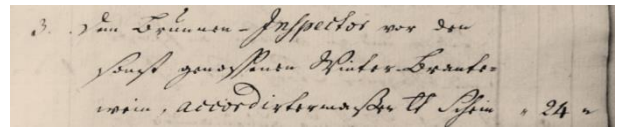 3. Dem Brunnen-Inspector vor den
sonst genossenen Winter-Brante-
wein, accordirtermaßen lt Schein " 24 "